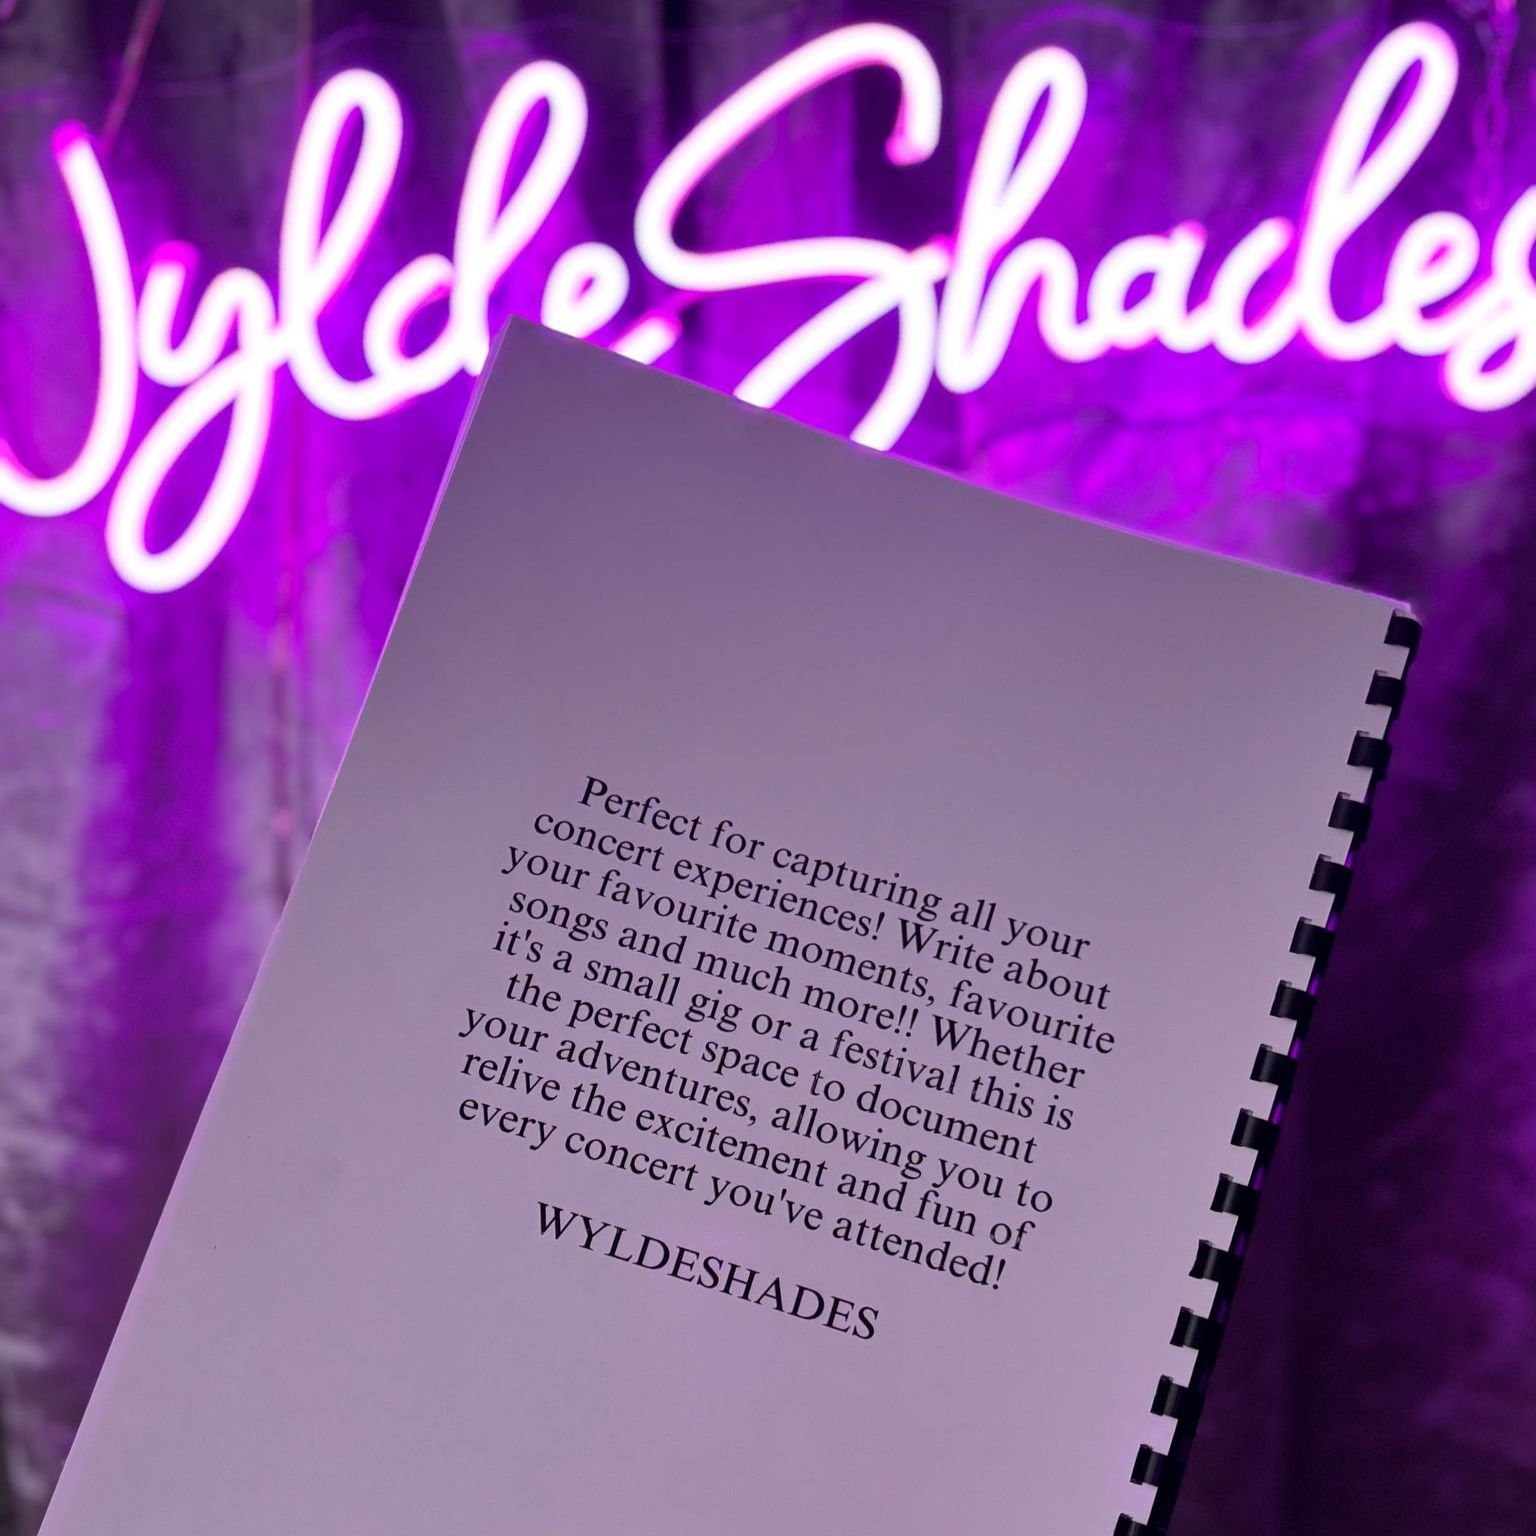 WyldeShades
Perfect for capturing all your
concert experiences! Write about
your favourite moments, favourite
songs and much more!! Whether
it's a small gig or a festival this is
the perfect space to document
your adventures, allowing you to
relive the excitement and fun of
every concert you've attended!
WYLDESHADES